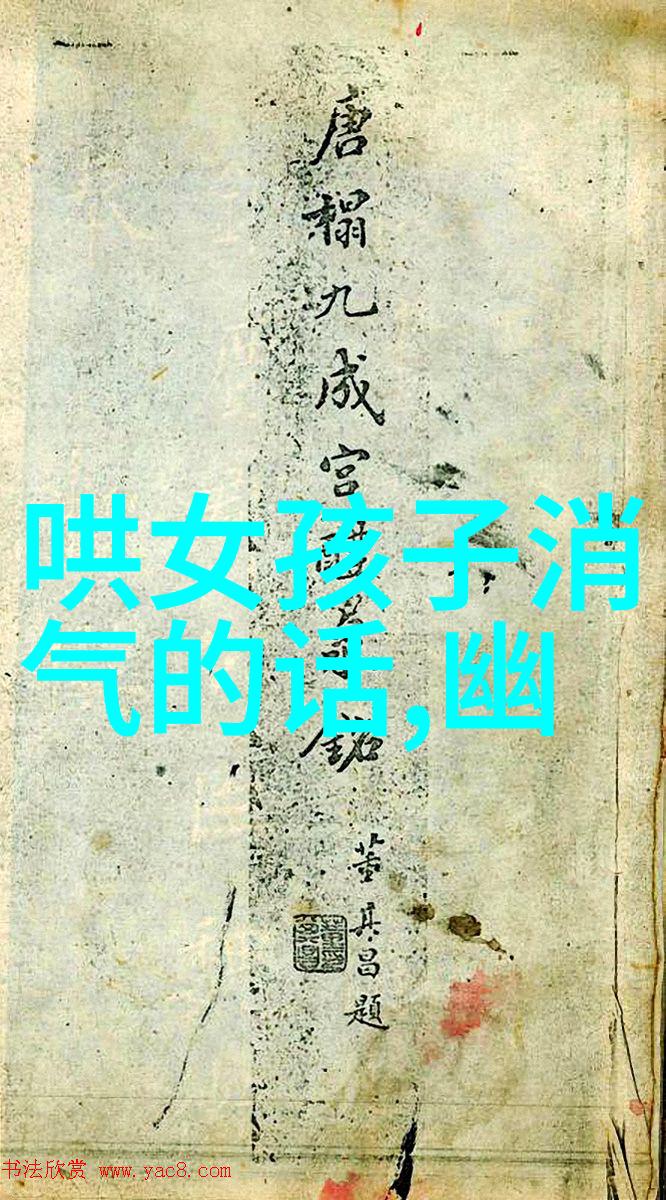 唐榻九成宫醴泉铭
董其昌题
哄女孩子消
气的话,幽
书法欣赏 www.yac8.com